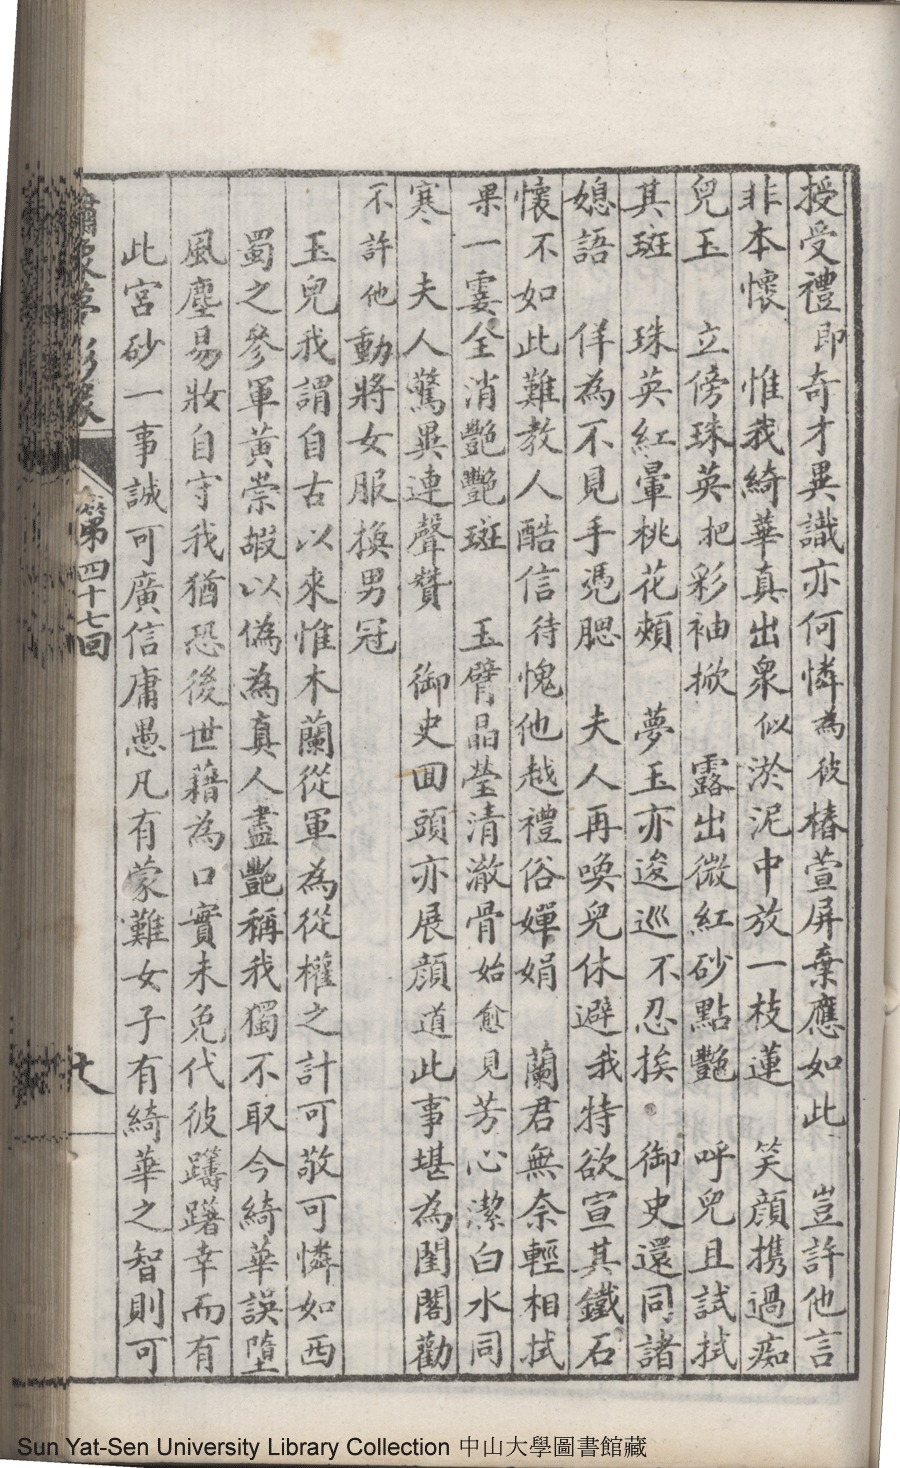 授受禮即奇才異識亦何憐為彼椿萱屏棄應如此　豈許他言
非本懷　惟我綺華真出眾似淤泥中放一枝蓮　笑顏攜過痴
兒玉　立傍珠英把彩袖掀　露出微紅砂點艷　呼兒且試拭
其斑　珠英紅暈桃花頰　夢玉亦逡巡不忍挨　御史還同諸
媳語　佯為不見手憑腮　夫人再喚兒休避我特欲宣其鐵石
懷不如此難教人酷信待愧他越禮俗嬋娟　蘭君無奈輕相拭
果一霎全消艷艷斑　玉臂晶瑩清澈骨始愈見芳心潔白水同
寒　夫人驚異連聲贊　御史回頭亦展顏道此事堪為閨閣勸
不許他動將女服換男冠
玉兒我謂自古以來惟木蘭從軍為從權之計可敬可憐如西
蜀之參軍黃崇嘏以偽為真人盡艷稱我獨不取今綺華誤墮
風塵易妝自守我猶恐後世藉為口實未免代彼躊躇幸而有
此宮砂一事誠可廣信庸愚凡有蒙難女子有綺華之智則可
第四十七回
中山大學圖書館藏
Sun Yat-Sen University Library Collection 中山大學圖書館藏